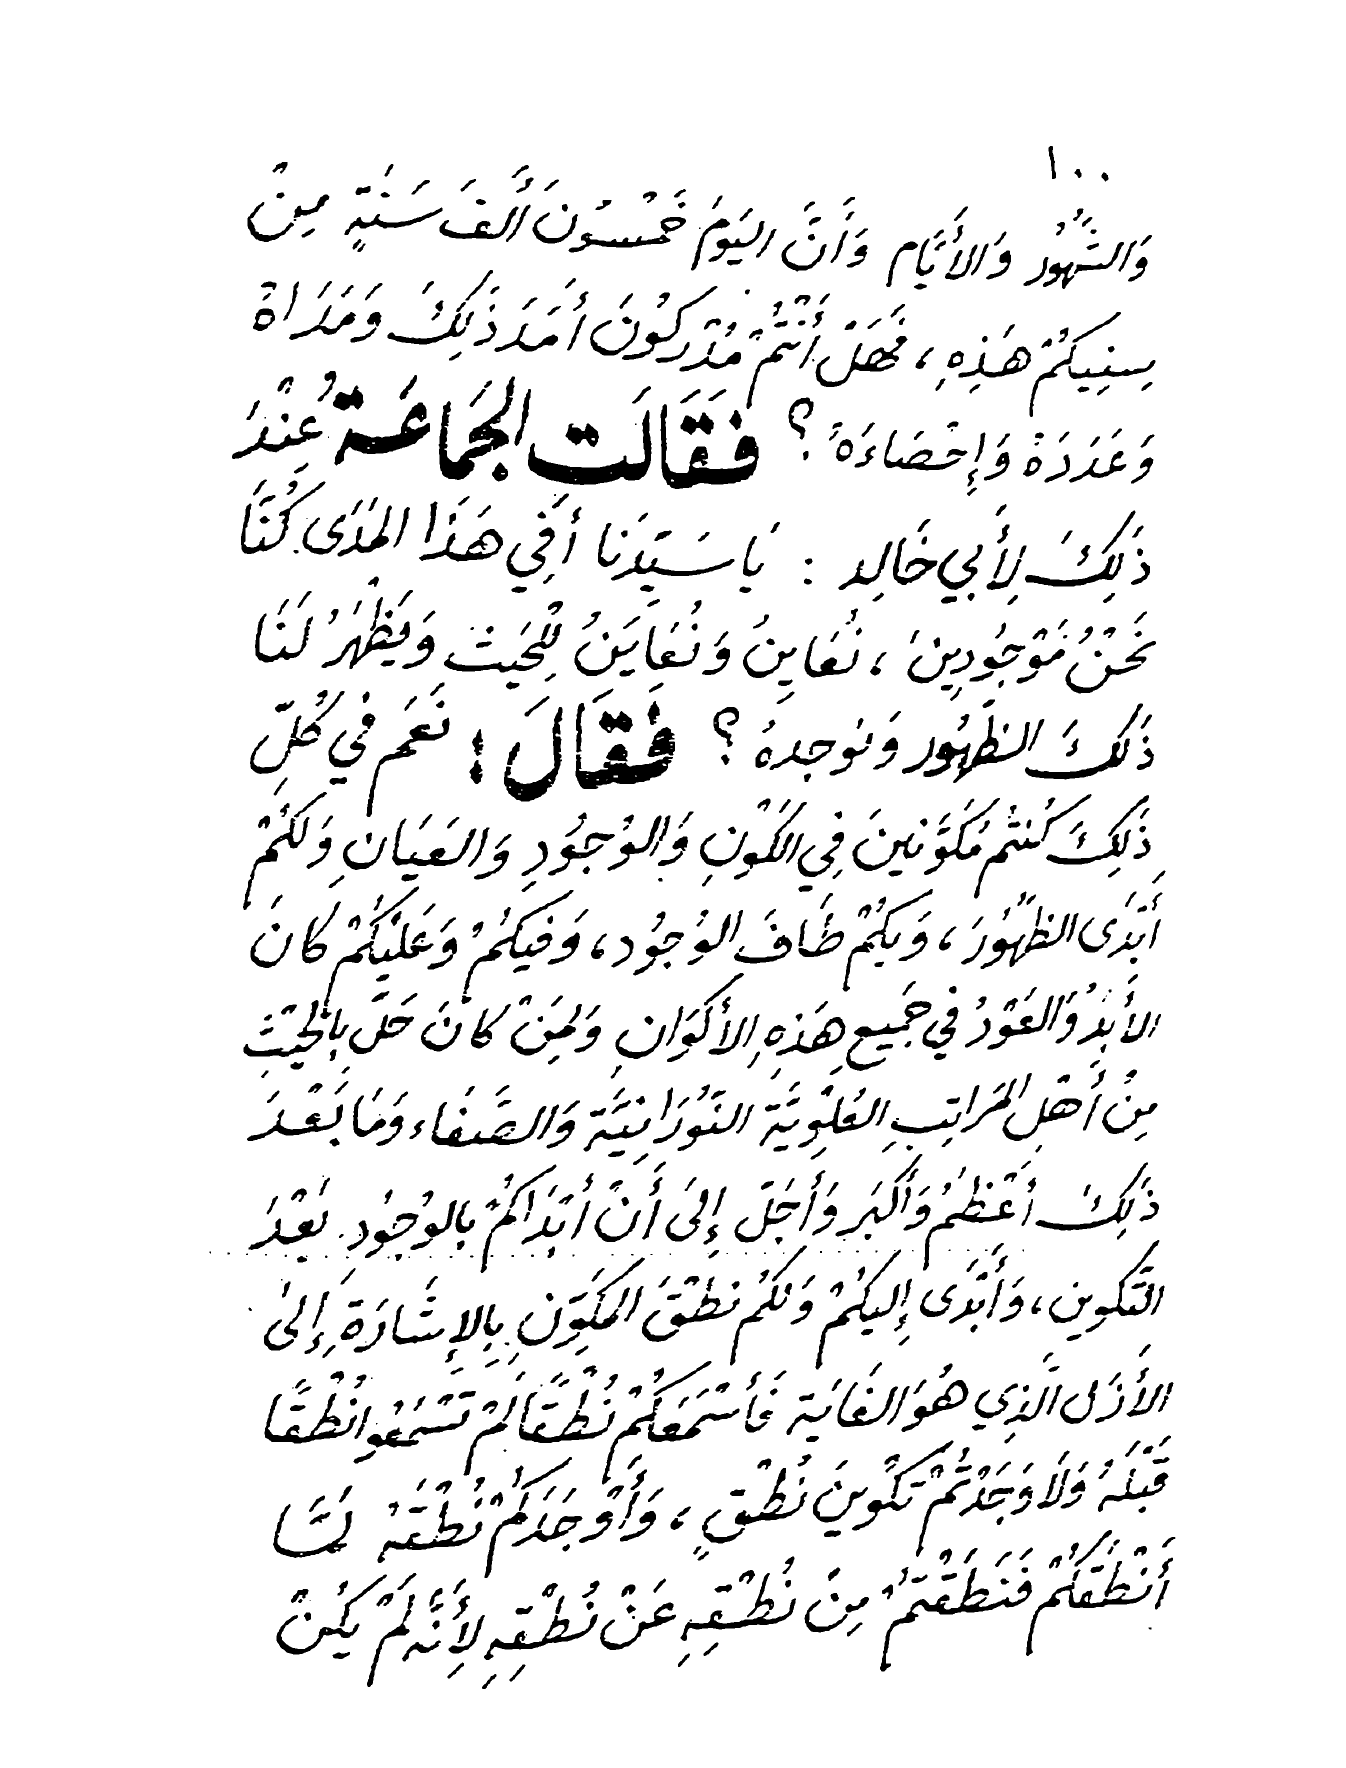 ١٠٠
وَالشُّهُورُ وَالأَيَّام وَأَنَّ اليَومَ خَمْسُونَ أَلفَ سَنَةٍ مِنْ
سِنِيكُمْ هَذِهِ ، فَهَلْ أَنْتُمْ مُدْرِكُونَ أَمَدَ ذَلِكَ وَمَدَاهُ
وَعَدَدَهُ وَإِحْصَاءَهُ ؟ فَقَالَت الجَمَاعَة عِنْدَ
ذَلِكَ لِأَبِي خَالِد : يَا سَيِّدَنَا أَفِي هَذَا المَدَى كُنَّا
نَحْنُ مَوْجُودِينَ ، نُعَايِنُ وَنُعَايَنُ لِلْحَيْث وَيَظْهَرُ لَنَا
ذَلكَ الظُّهُور وَنوجدهُ ؟ فَقَالَ : نَعَم فِي كُلِّ
ذَلِكَ كُنتُم مُكَوَّنِينَ فِي الكَوْنِ وَالوُجُودِ وَالعَيَانِ وَلَكُمْ
أَبْدَى الظُّهُورَ ، وَبِكُمْ طَافَ الوُجُود ، وَفِيكُمْ وَعَلَيْكُمْ كَانَ
الأَبَدُ وَالعَوْدُ فِي جَمِيعِ هَذِهِ الأَكْوَانِ وَلِمَنْ كَانَ حَلَّ بِالحَيْثِ
مِنْ أَهْلِ المَرَاتِبِ العُلْوِيَّة النُّورَانِيَّة وَالصَّفَاء وَمَا بَعْدَ
ذَلِكَ أَعْظَمُ وَأَكْبَر وَأَجَلّ إِلَى أَنْ أَبْدَاكُمْ بِالوُجُودِ بَعْدَ
التَّكوِين ، وَأَبْدَى إِلَيكُمْ وَلَكُمْ نطْقَ المُكَوِّنِ بِالإِشَارَةِ إِلَى
الأَزَل الَّذِي هُوَ الغَايَة فَأَسْمَعَكُمْ نُطْقًا لَمْ تَسْمَعُوا نُطْقًا
قَبْلَهُ وَلَا وَجَدْتُمْ تَكْوِينَ نُطْقٍ ، وَأَوْجَدَكُمْ نُطْقَهُ لَمَّا
أَنْطَقَكُمْ فَنَطَقْتُمْ مِنْ نُطْقِهِ عَنْ نُطْقِهِ لِأَنَّهُ لَمْ يَكُنْ